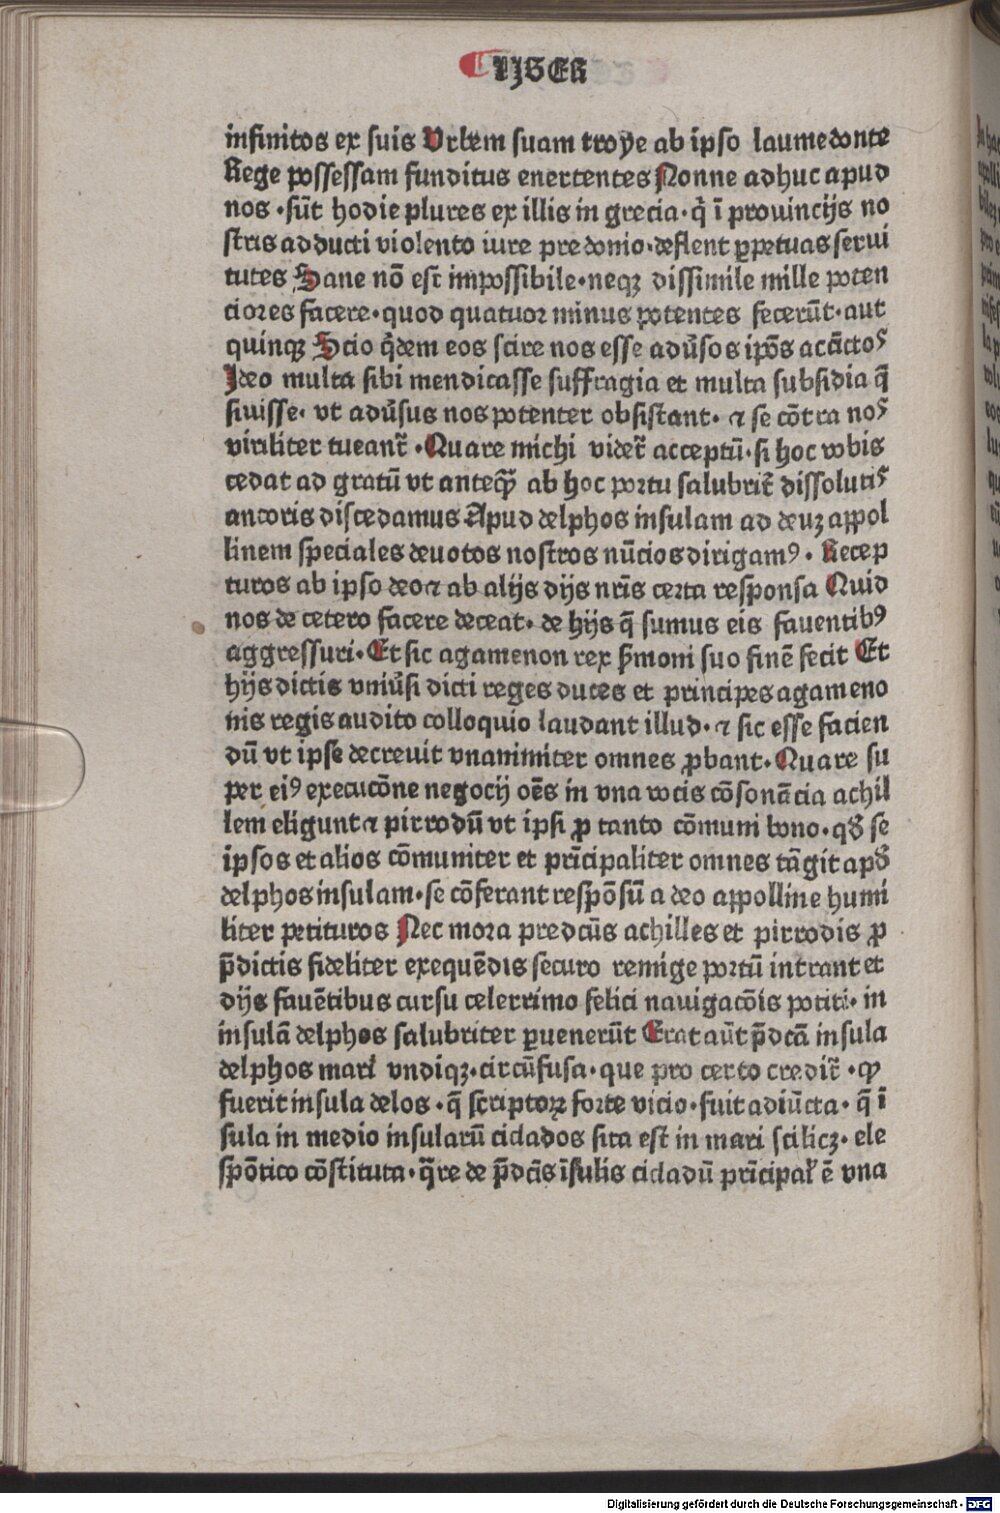 LIBER
infinitos ex suis Vrbem suam troye ab ipso laumedonte
Rege possessam funditus enertentes Nonne adhuc apud
nos ·sūt hodie plures ex illis in grecia· q̄ ī prouincijs no
stris adducti violento iure predonio·deflent ꝑpetuas serui
tutes Sane nō est impossibile·neqꝫ dissimile mille poten
ciores facere·quod quatuor minus potentes fecerūt·aut
quinqꝫ Scio q̄dem eos scire nos esse adūsos ipōs acāctoꝰ
Ideo multa sibi mendicasse suffragia et multa subsidia q̄
siuisse· vt adūsus nos potenter obsistant· ⁊ se cōtra noꝰ
viriliter tueant᷑ ·Quare michi videt᷑ acceptū·si hoc vobis
cedat ad gratū vt anteꝙ̄ ab hoc portu salubrit᷑ dissolutiꝰ
ancoris discedamus Apud delphos insulam ad deuꝫ appol
linem speciales deuotos nostros nūcios dirigamꝰ· Recep
turos ab ipso deo ⁊ ab alijs dijs nr̄is certa responsa Quid
nos de cetero facere deceat· de hijs q̄ sumus eis fauentibꝰ
aggressuri·Et sic agamenon rex s̄moni suo finē fecit Et
hijs dictis vniūsi dicti reges duces et principes agameno
nis regis audito colloquio laudant illud· ⁊ sic esse facien
dū vt ipse decreuit vnanimiter omnes ꝓbant· Quare su
per eiꝰ execucōne negocij oēs in vna vocis cōsonācia achil
lem eligunt ⁊ pirrodū vt ipsi ꝓ tanto cōmuni bono· qd̄ se
ipsos et alios cōmuniter et prīcipaliter omnes tāgit apd̄
delphos insulam·se cōferant respōsū a deo appolline humi
liter petituros Nec mora predcūs achilles et pirrodis ꝓ
p̄dictis fideliter exequēdis securo remige portū intrant et
dijs fauētibus cursu celerrimo felici nauigacōis potiti· in
insulā delphos salubriter ꝑuenerūt Erat aūt p̄dcā insula
delphos mari vndiqꝫ·circūfusa·que pro certo credit᷑ ·ꝙ
fuerit insula delos ·q̄ scriptoꝝ forte vicio·fuit adiūcta· q̄ ī
sula in medio insularū cicladōs sita est in mari scilicꝫ· ele
spōtico cōstituta·q̄re de p̄dcīs īsulis cicladū prīcipal̄ ē vna
Digitalisierung gefördert durch die Deutsche Forschungsgemeinschaft - DFG